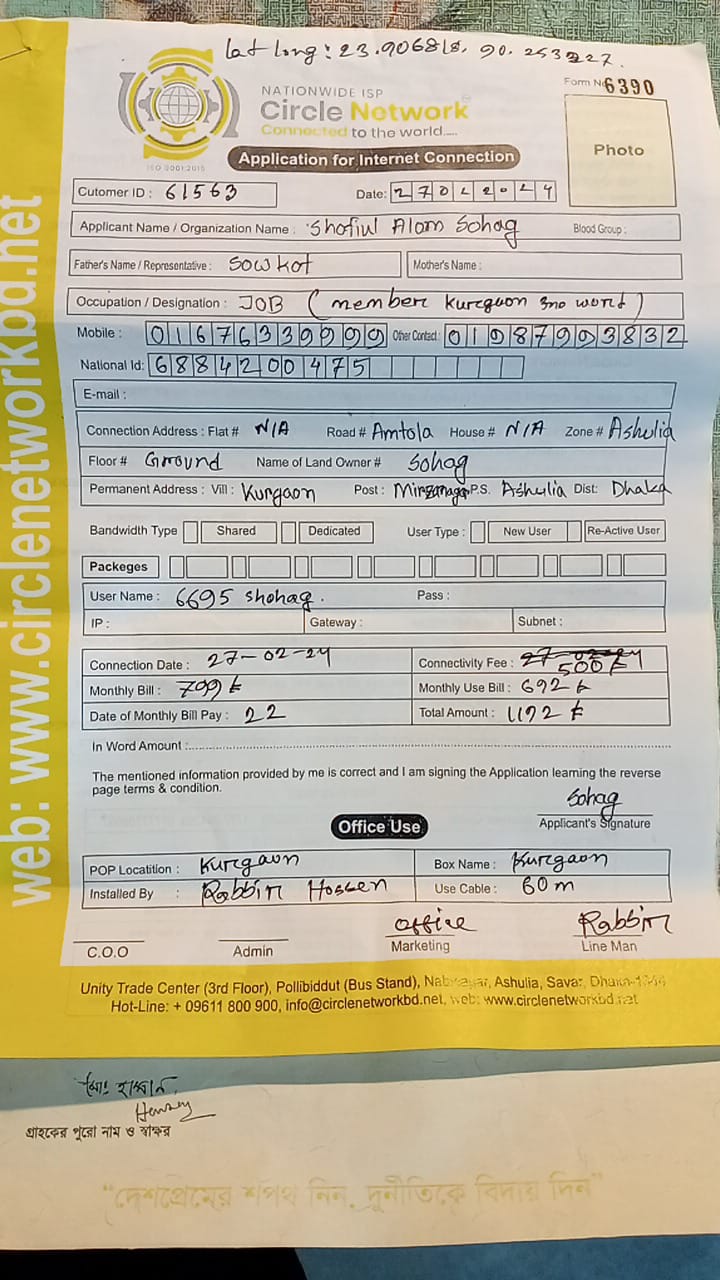 lat long: 23.906818, 90.253227.
NATIONWIDE ISP
Circle Network
Connected to the world.....
ISO 9001:2015
Form No 6390
Photo
Application for Internet Connection
Cutomer ID : 61563
Date: 27022024
Applicant Name / Organization Name : Shofiul Alom Sohag Blood Group :
Father's Name / Representative : Sowkot Mother's Name :
Occupation / Designation : JOB (member Kurgaon 3no word)
Mobile : 01676339999 Other Contact : 01987993832
National Id: 6884200475
E-mail :
Connection Address : Flat # N/A Road # Amtola House # N/A Zone # Ashulia
Floor # Ground Name of Land Owner # Sohag
Permanent Address : Vill : Kurgaon Post : Mirzanagar P.S. Ashulia Dist: Dhaka
Bandwidth Type Shared Dedicated User Type : New User Re-Active User
Packeges
User Name : 6695 shohag. Pass :
IP : Gateway : Subnet :
Connection Date : 27-02-24 Connectivity Fee : 27-02-24 500 ৳
Monthly Bill : 799 ৳ Monthly Use Bill : 692 ৳
Date of Monthly Bill Pay : 22 Total Amount : 1192 ৳
In Word Amount :
The mentioned information provided by me is correct and I am signing the Application learning the reverse
page terms & condition.
Sohag
Applicant's Signature
Office Use
POP Locatition : Kurgaon Box Name : Kurgaon
Installed By : Rabbin Hossen Use Cable : 60 m
Office Rabbin
C.O.O Admin Marketing Line Man
Unity Trade Center (3rd Floor), Pollibiddut (Bus Stand), Nabinagar, Ashulia, Savar, Dhaka-1344
Hot-Line: + 09611 800 900, info@circlenetworkbd.net, web: www.circlenetworkbd.net
web: www.circlenetworkbd.net
মোঃ হাসান
গ্রাহকের পুরো নাম ও স্বাক্ষর
"দেশপ্রেমের শপথ নিন, দুর্নীতিকে বিদায় দিন"